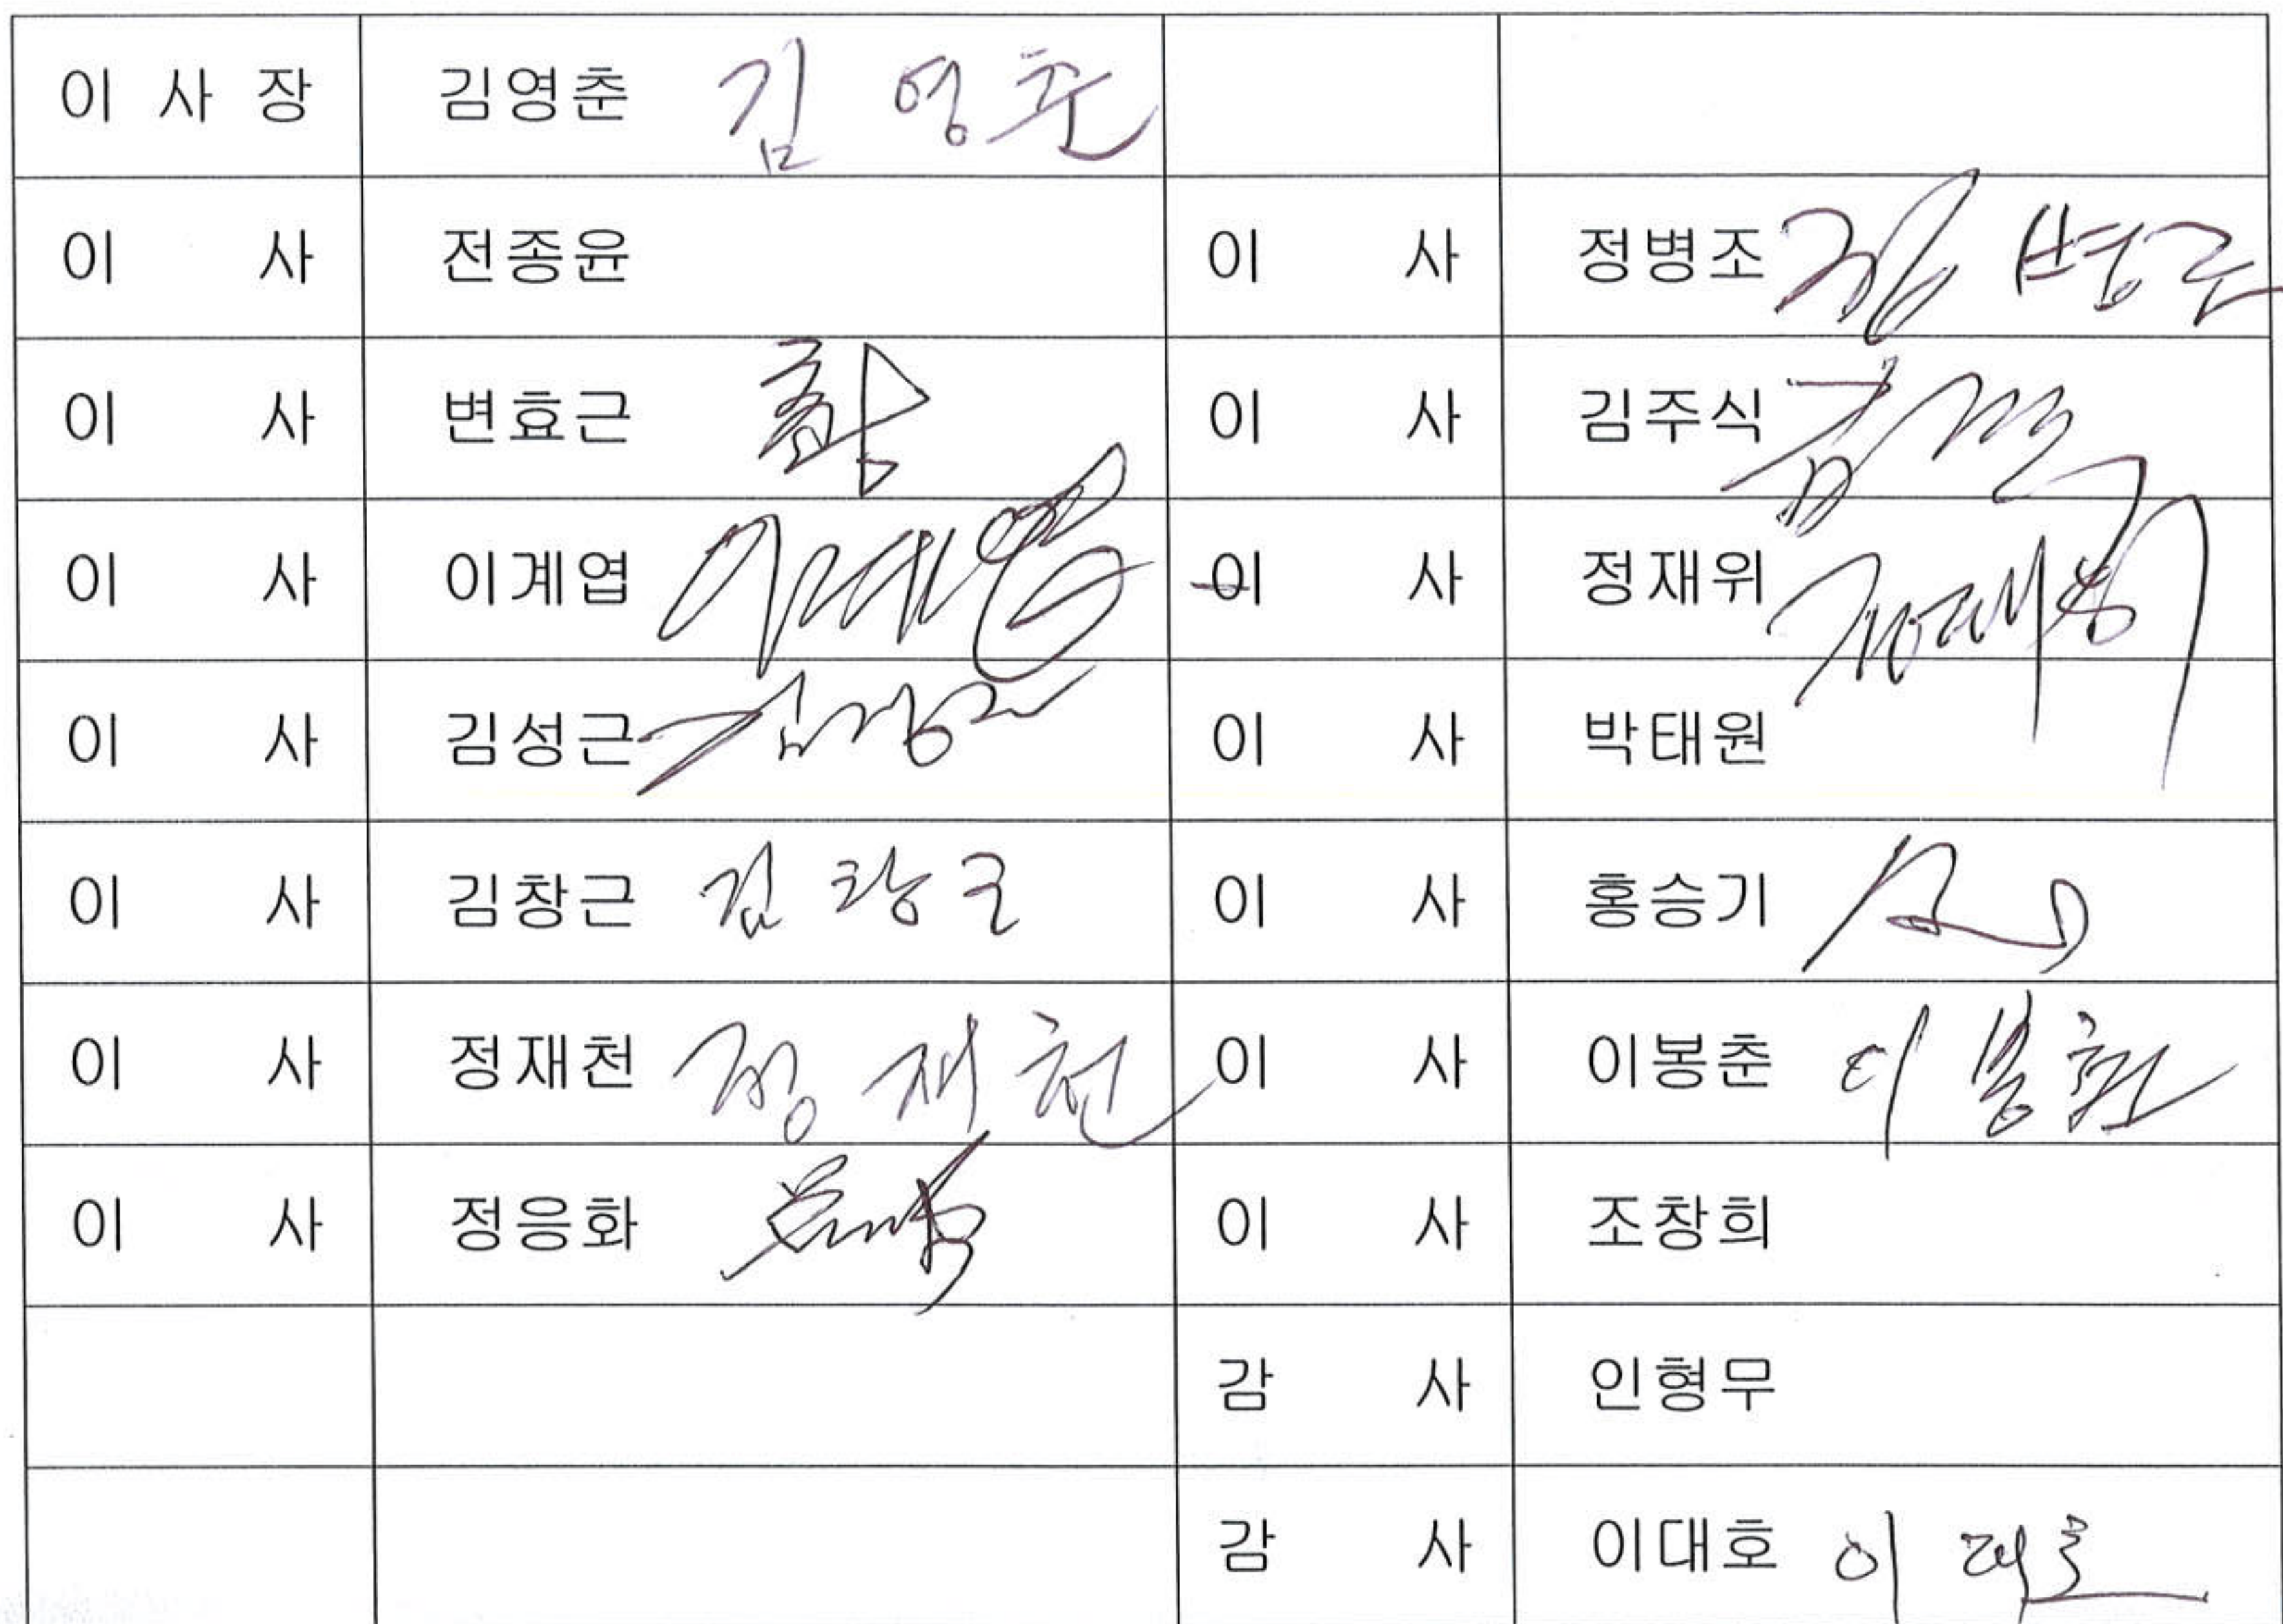 이 사 장 김영춘 김 영춘
이 사 전종윤 이 사 정병조 정 병조
이 사 변효근 이 사 김주식
이 사 이계엽 이계엽 이 사 정재위 정재위
이 사 김성근 김성근 이 사 박태원
이 사 김창근 김 창근 이 사 홍승기
이 사 정재천 정 재천 이 사 이봉춘 이 봉춘
이 사 정응화 이 사 조창희
감 사 인형무
감 사 이대호 이 대호